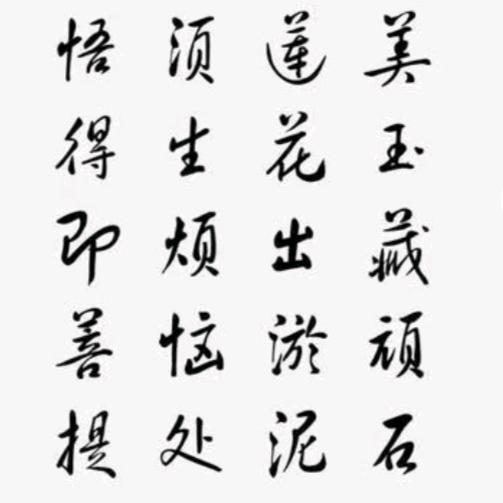 美玉藏顽石
莲花出淤泥
须生烦恼处
悟得即菩提